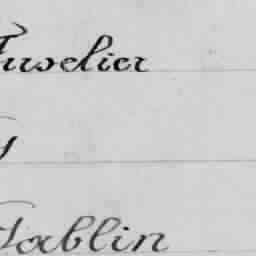 Juwelier
y
Tablin